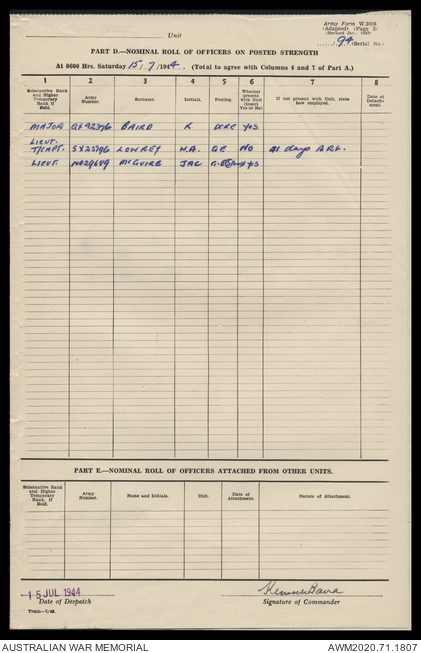 Army Form W.3008
(Adapted) (Page 2)
(Revised Jan., 1943)
Unit
94 (Serial No.)
PART D.—NOMINAL ROLL OF OFFICERS ON POSTED STRENGTH
At 0600 Hrs. Saturday 15/7/1944. (Total to agree with Columns 4 and 7 of Part A.)
1 2 3 4 5 6 7 8
Substantive Rank and Higher Temporary Rank if Held. Army Number. Surname. Initials. Posting. Whether present with Unit (Insert Yes or No) If not present with Unit, state how employed. Date of Detachment.
MAJOR QX92376 BAIRD K DCRE YES
LIEUT.
T/CAPT. SX25796 LOWREY N.A. GE NO 41 days A RL.
LIEUT. NA29649 McGUIRE JAC YES
PART E.—NOMINAL ROLL OF OFFICERS ATTACHED FROM OTHER UNITS.
Substantive Rank and Higher Temporary Rank, if Held. Army Number. Name and Initials. Unit. Date of Attachment. Nature of Attachment.
15 JUL 1944
Date of Despatch Signature of Commander
AUSTRALIAN WAR MEMORIAL AWM2020.71.1807